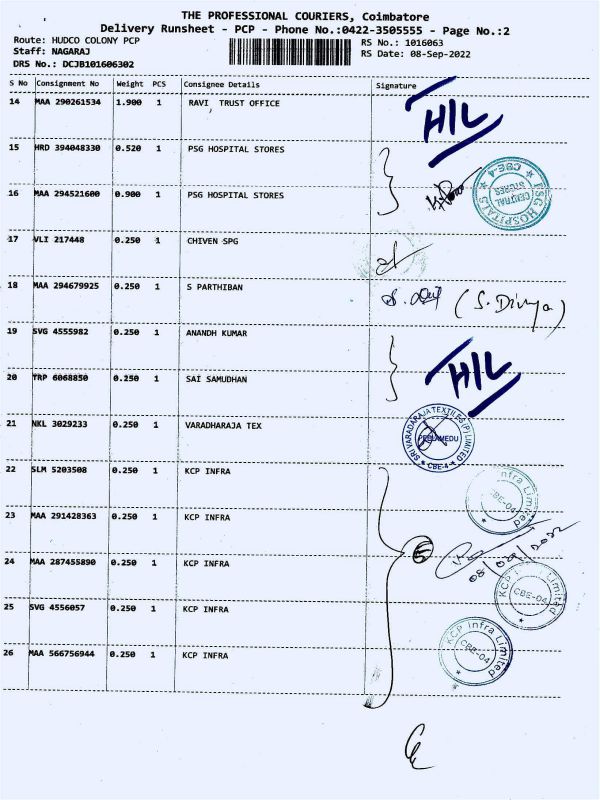 THE PROFESSIONAL COURIERS, Coimbatore
Delivery Runsheet - PCP - Phone No.:0422-3505555 - Page No.:2
Route: HUDCO COLONY PCP RS No.: 1016063
Staff: NAGARAJ RS Date: 08-Sep-2022
DRS No.: DCJB101606302
S No Consignment No Weight PCS Consignee Details Signature
14 MAA 290261534 1.900 1 RAVI , TRUST OFFICE H/L
15 HRD 394048330 0.520 1 PSG HOSPITAL STORES
PSG HOSPITALS CENTRAL STORES CBE-4
16 MAA 294521600 0.900 1 PSG HOSPITAL STORES
17 VLI 217448 0.250 1 CHIVEN SPG
18 MAA 294679925 0.250 1 S PARTHIBAN (S. Divya)
19 SVG 4555982 0.250 1 ANANDH KUMAR
20 TRP 6068850 0.250 1 SAI SAMUDHAN H/L
21 NKL 3029233 0.250 1 VARADHARAJA TEX
SRI VARADARAJA TEXTILES (P) LIMITED PEELAMEDU CBE-4
22 SLM 5203508 0.250 1 KCP INFRA
Infra Limited CBE-04
23 MAA 291428363 0.250 1 KCP INFRA
5 08/09/2022
24 MAA 287455890 0.250 1 KCP INFRA
KCP Infra Limited CBE-04
25 SVG 4556057 0.250 1 KCP INFRA
KCP Infra Limited CBE-04
26 MAA 566756944 0.250 1 KCP INFRA